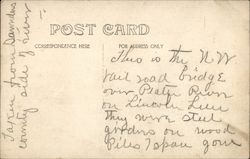 POST CARD
CORRESPONDENCE HERE
FOR ADDRESS ONLY
Taken from Saunders
county side of river
This is the N W
rail road bridge
over Platte River
on Lincoln Line
They were steel
girders on wood
Piles 7 span gone